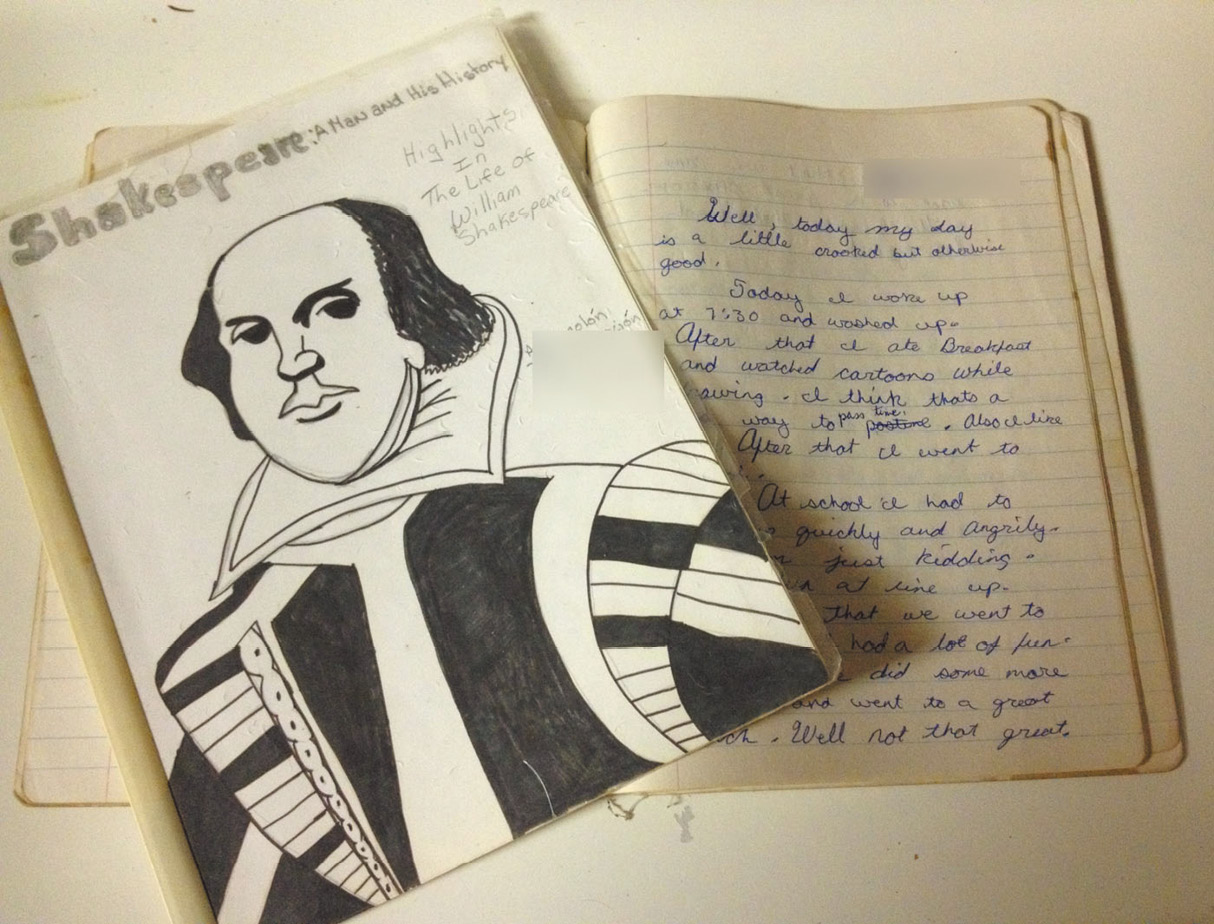 Shakespeare: A Man and His History
Highlights
In
The Life of
William
Shakespeare
Well, today my day
is a little crooked but otherwise
good.
Today I woke up
at 7:30 and washed up.
After that I ate Breakfast
and watched cartoons while
I think thats a
way to pass time. pastime. Also I like
After that I went to
At school I had to
quickly and Angrily.
just kidding.
at line up.
That we went to
had a lot of fun.
did some more
and went to a great
Well not that great.